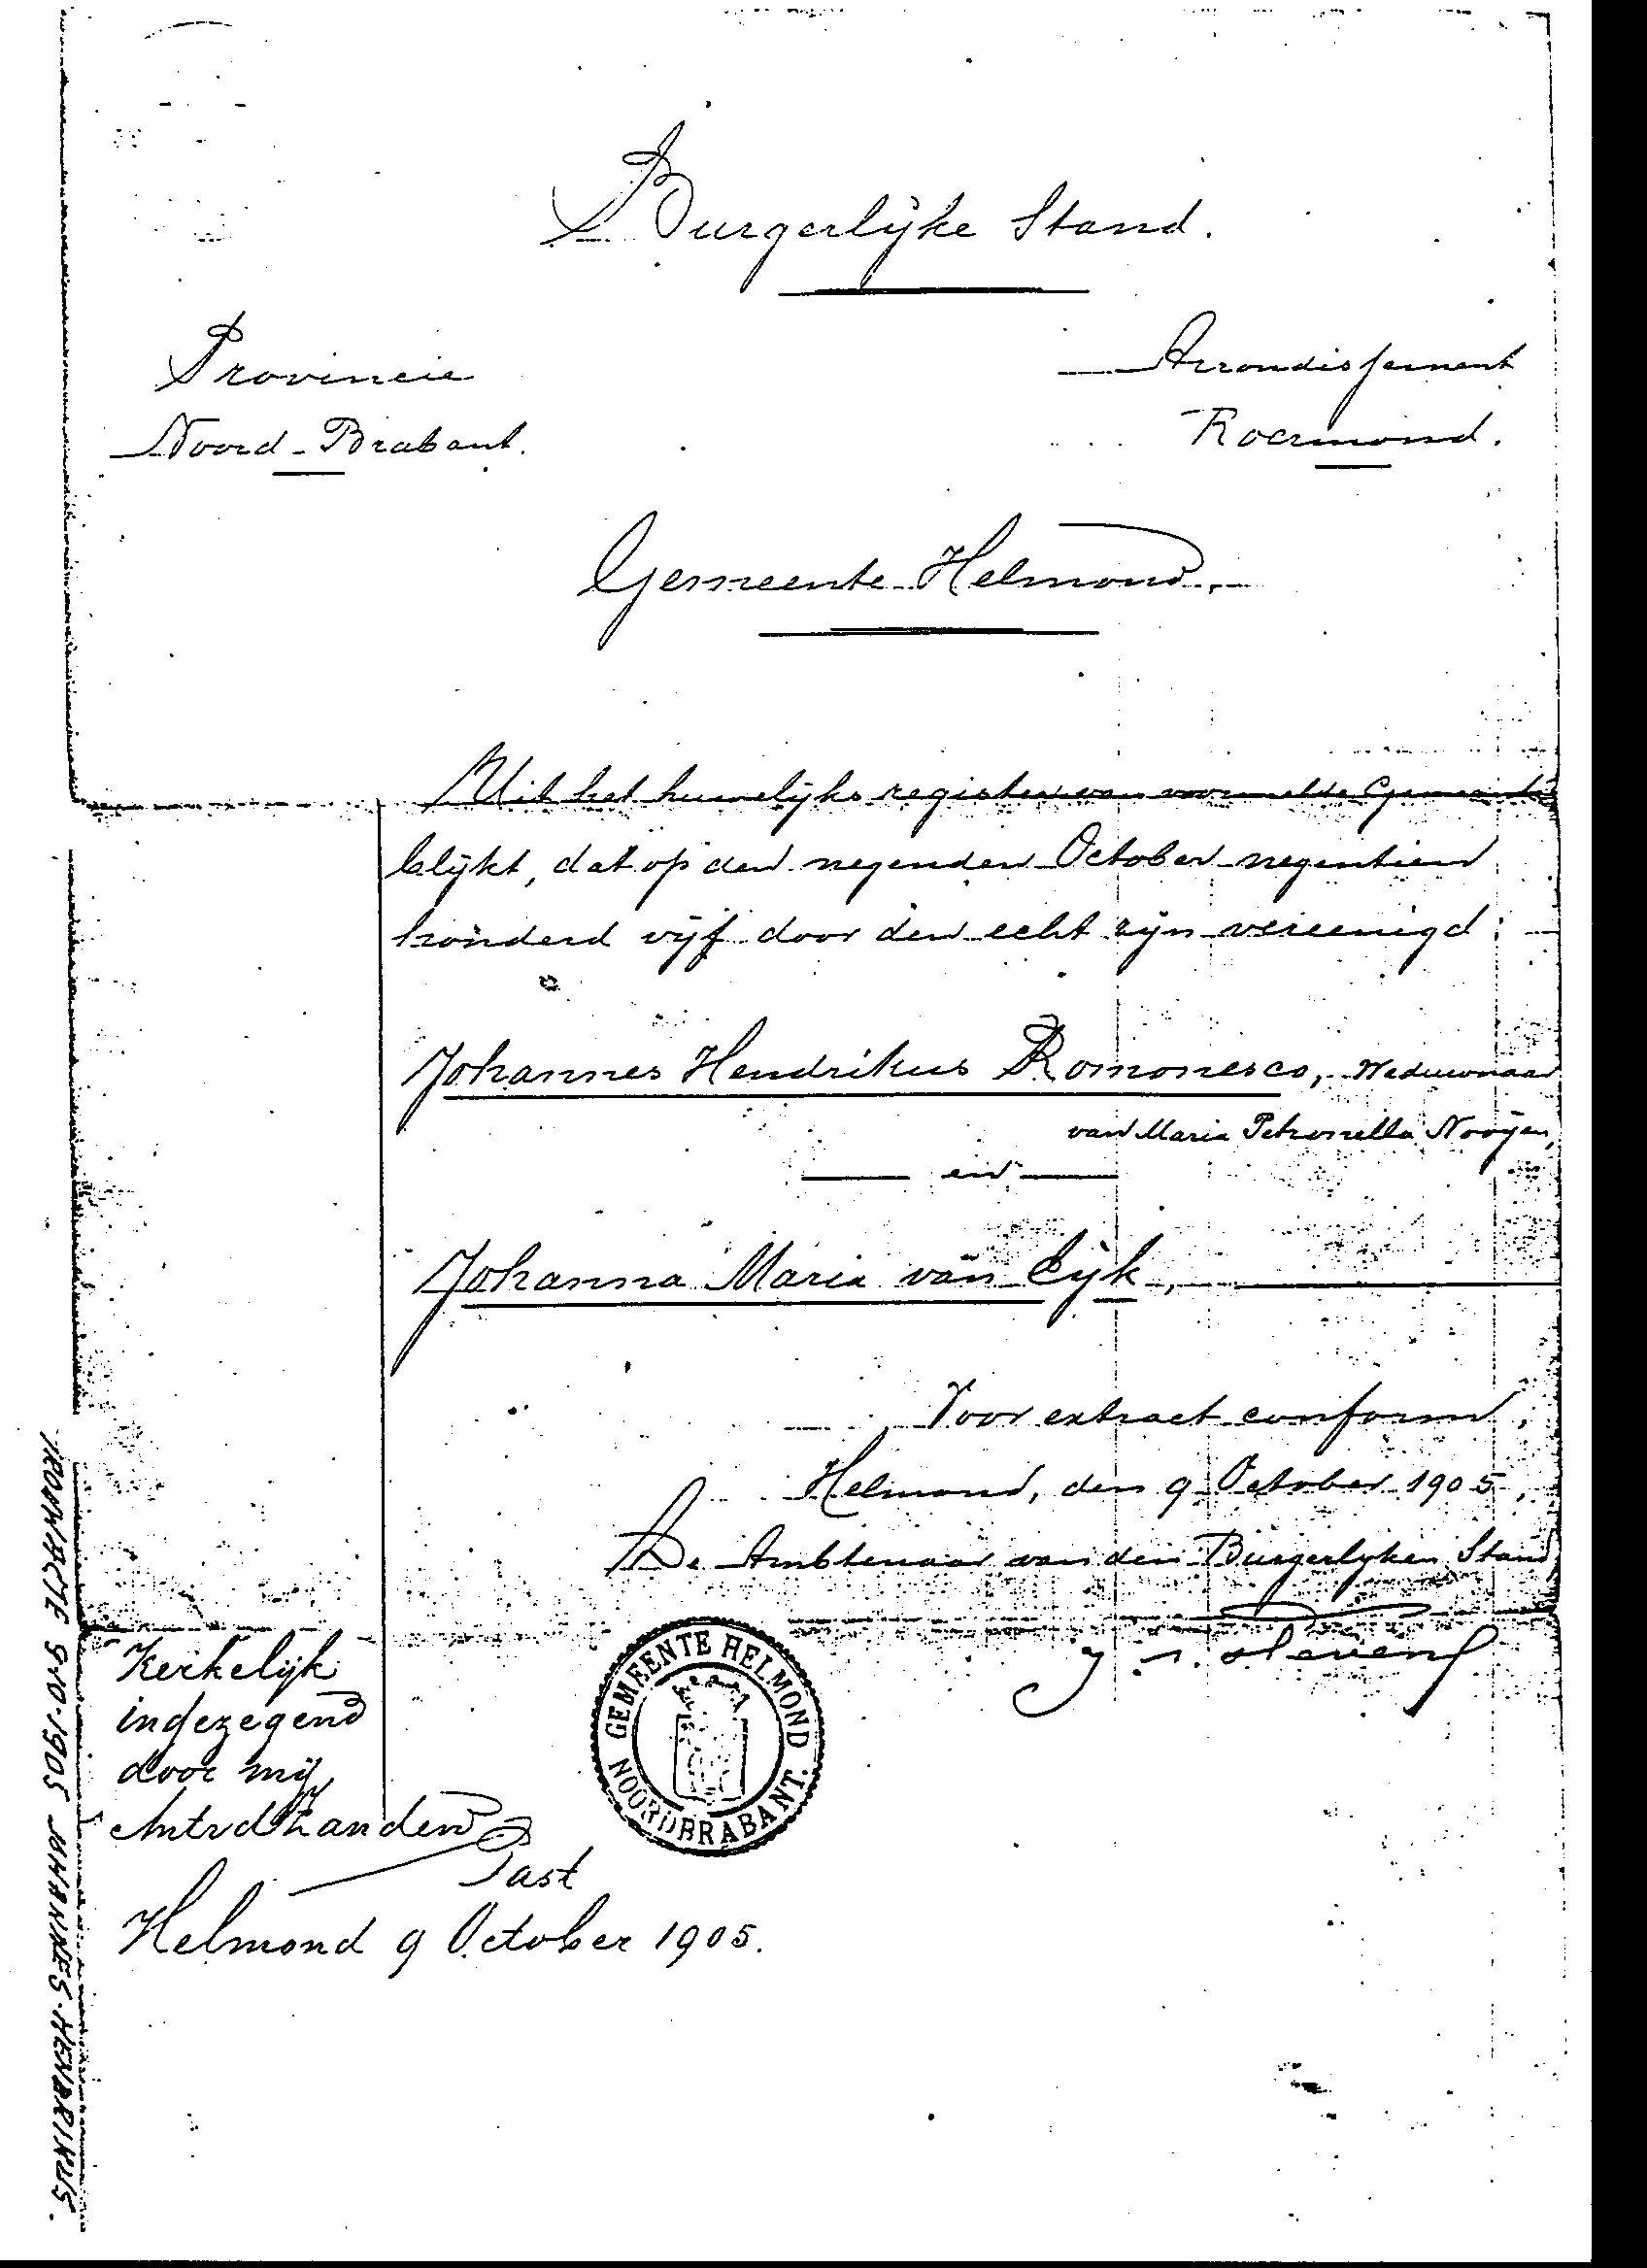 Burgerlijke Stand.
Provincie
Noord-Brabant.
Arrondissement
Roermond.
Gemeente Helmond,
Uit het huwelijks register van voormelde Gemeente
blijkt, dat op den negenden October negentien
honderd vijf door den echt zijn vereenigd:
Johannes Hendrikus Romonesco, Weduwnaar
van Maria Petronella Nooijen,
en
Johanna Maria van Eijk,
Voor extract conform,
Helmond, den 9 October 1905,
De Ambtenaar van den Burgerlyken Stand
GEMEENTE HELMOND
NOORDBRABANT.
Kerkelijk
ingezegend
door mij
Past
Helmond 9 October 1905.
TROUWACTE 9-10-1905 JOHANNES-HENDRIKUS.